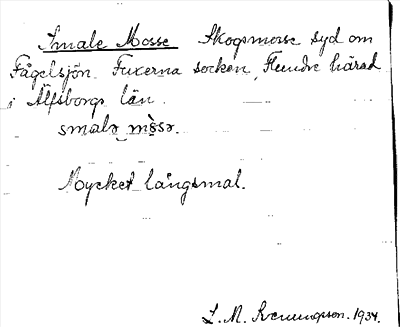 Smale Mosse Skogsmosse syd om
Fågelsjön. Fuxerna socken, Flundre härad
i Älfsborgs län.
smalə mo̖sə.
Mycket långsmal.
L. M. Svenungsson. 1934.